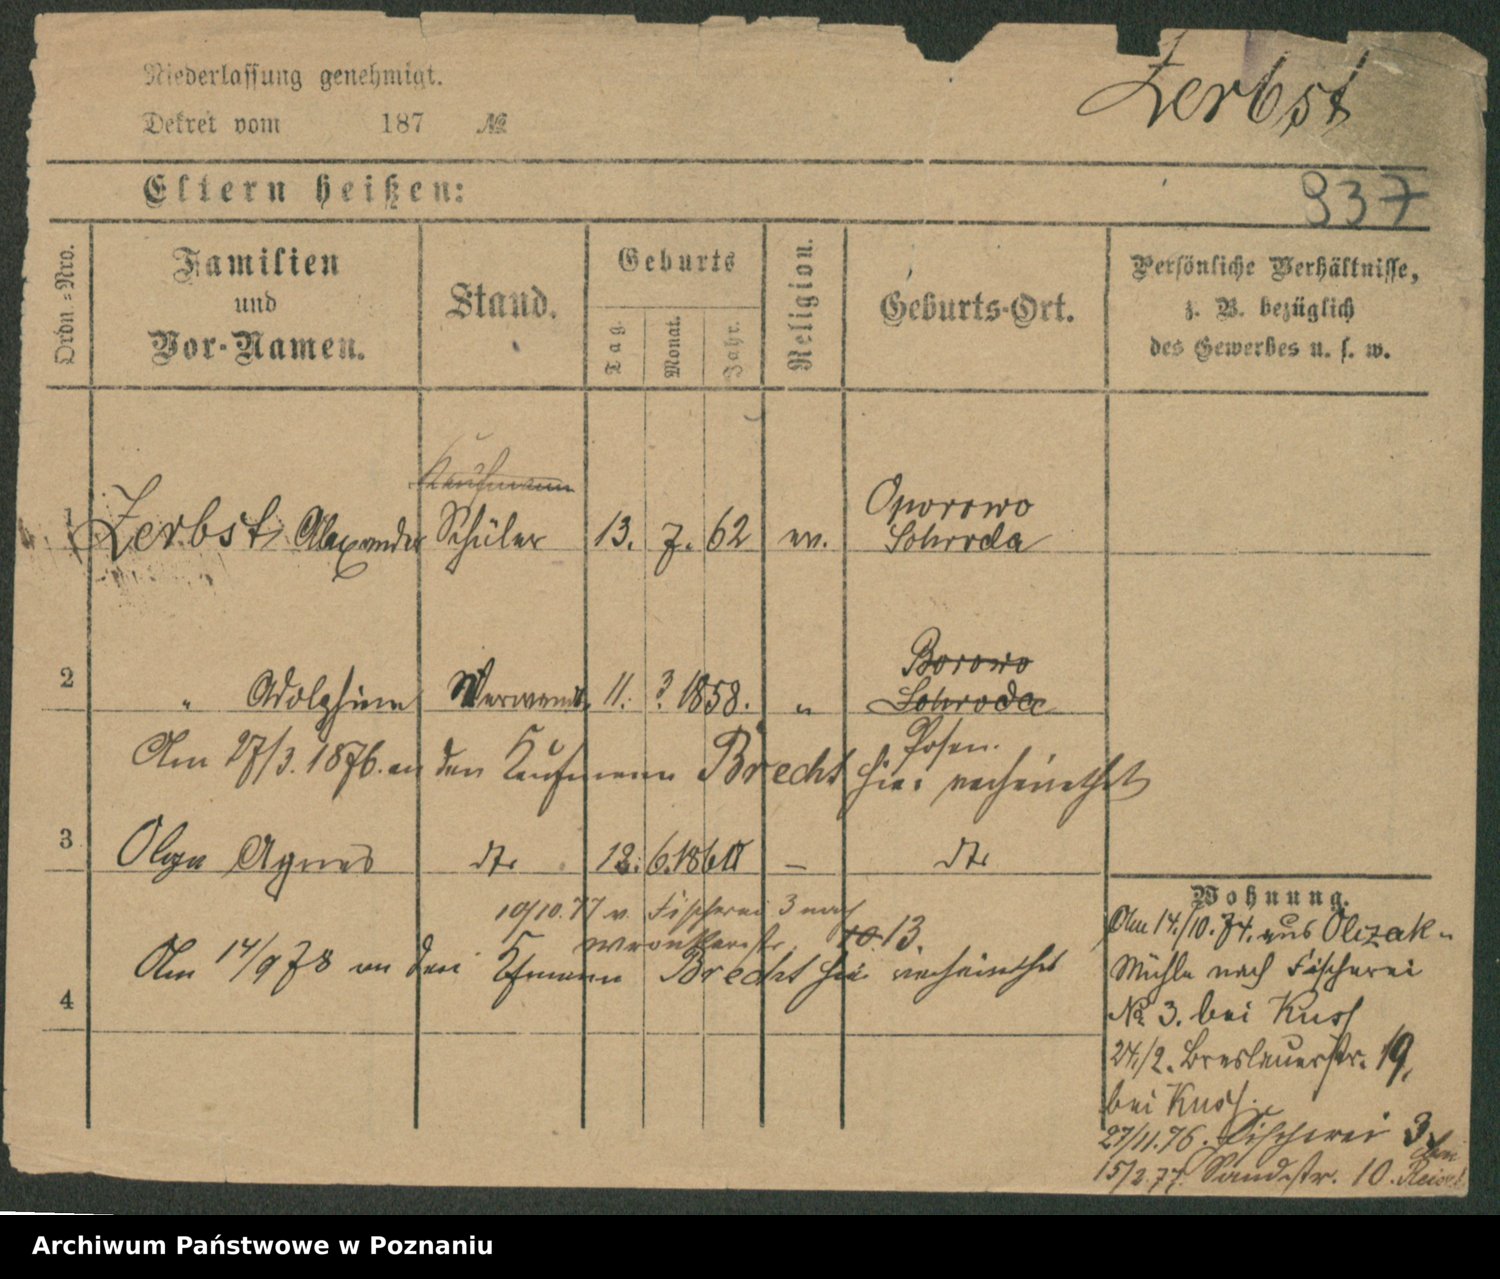 Niederlassung genehmigt.
Zerbst
Dekret vom 187 №
Eltern heißen:
937
Ordn.=Nro.
Familien
und
Vor-Namen.
Stand.
Geburts
Tag.
Monat.
Jahr.
Religion.
Geburts-Ort.
Persönliche Verhältnisse,
z. B. bezüglich
des Gewerbes u. s. w.
Kaufmann
1 Zerbst Alexander Schüler 13. 7. 62 ev. Oporowo
Schroda
Borowo
2 " Adolphine Verwandt. 11. 3. 1858. " Schroda
Posen.
Am 27/3. 1876. an den Kaufmann Brecht hier verheirathet
3 Olga Agnes dto 12. 6. 1860 — dto
10/10. 77 v. Fischerei 3 nach
Wronkerstr. 10. 13.
Am 14/9 78 an den Kfmann Brecht hier verheirathet
4
Wohnung.
Am 14./10. 74. aus Olczak-
Mühle nach Fischerei
№ 3. bei
24./2. Breslauerstr. 19.
bei
27/11. 76. Fischerei 3.
15/2. 77. Sandstr. 10.
Archiwum Państwowe w Poznaniu